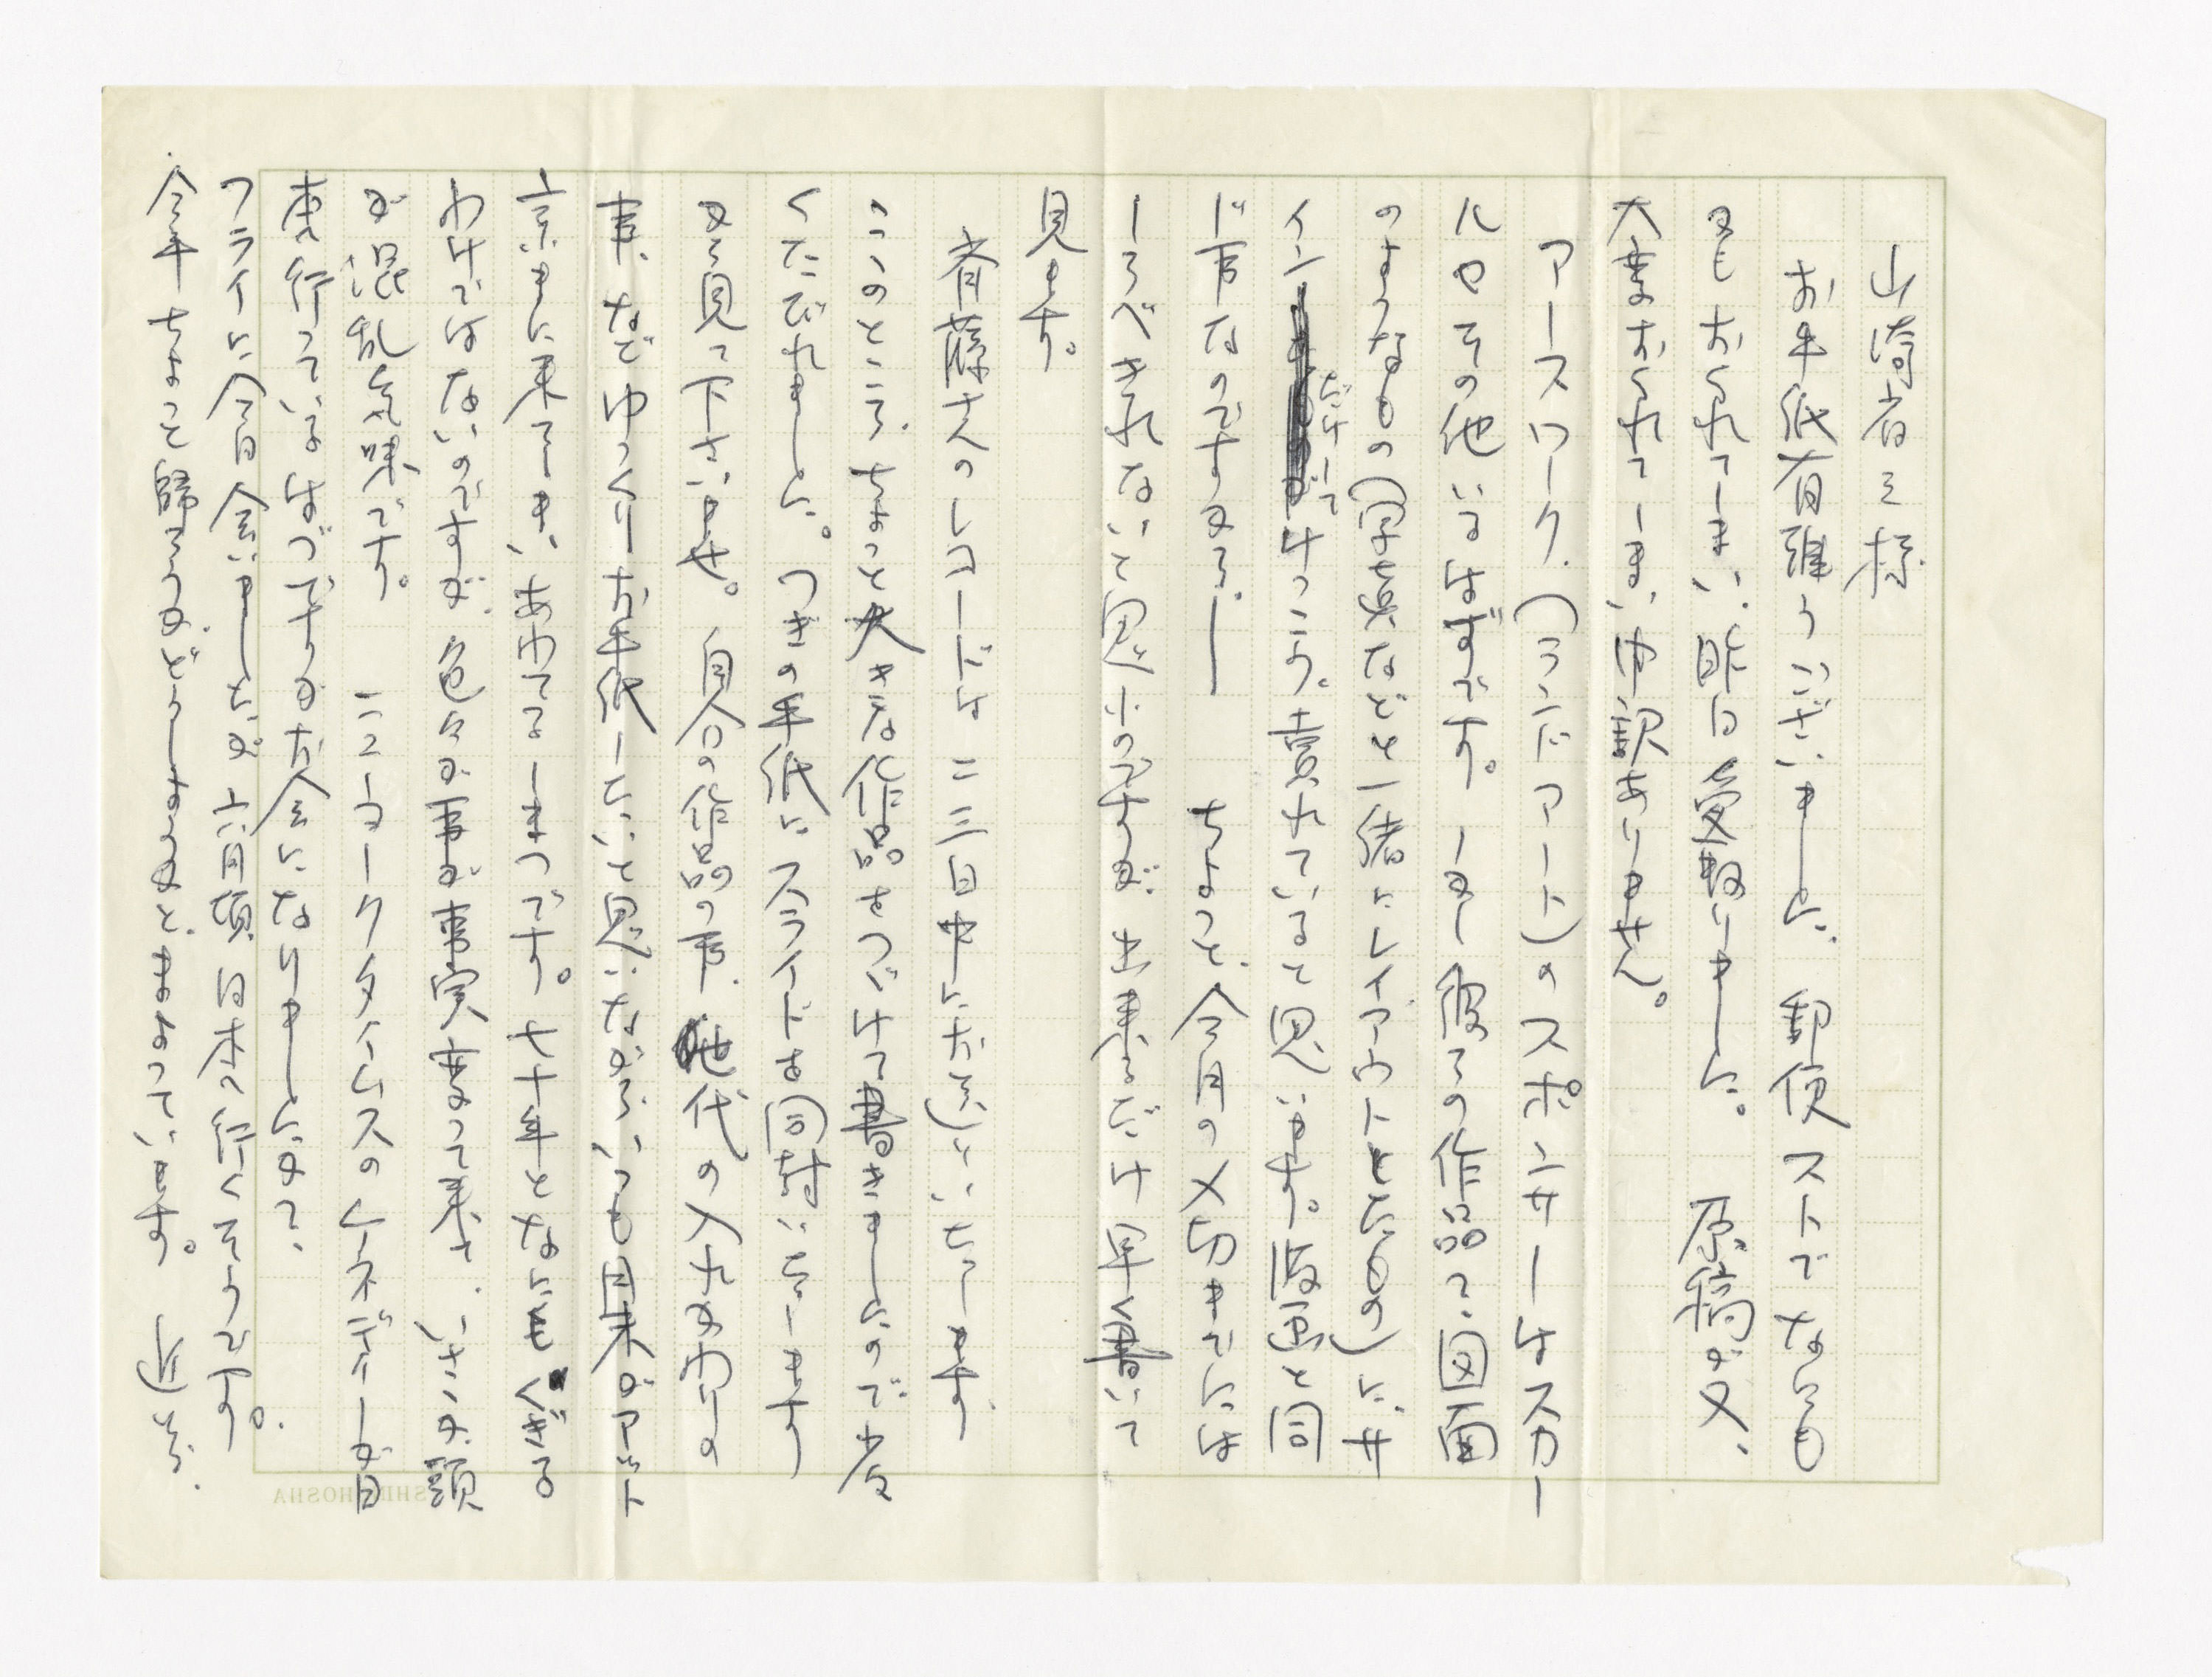 山崎省三様
お手紙有難うございました。郵便ストでなにも
かもおくれてしまい、昨日受取りました。 原稿が又、
大変おくれてしまい申訳ありません。
アースワーク、(ランドアート)のスポンサーはスカー
ルやその他いるはずです。しかし 彼らの作品は、図面
のようなもの(写真などと一緒にレイアウトしたもの)に、サ
インだけして けっこう、売れていると思います。版画と同
じ事なのですから。― ちょっと、今月の〆切までには
しらべきれないと思うのですが、出来るだけ早く書いて
見ます。
斉藤さんのレコードは 二三日中にだぶいたします
このところ、ちょっと大きな作品をつづけて書きましたので 少々
くたびれました。つぎの手紙に スライドは同封いたします
から見て下さいませ。自分の作品の事、他の人たちの
事、など ゆっくりお手紙したいと思いながら いつも月末がアット
云うまに来てしまい あわてるしまつです。七十年となにもくぎる
わけではないのですが、色々な事が事実変って来ました、いささか頭
が混乱気味です。 ニューヨークタイムスのケネディーが日
本に行っているはづですがお会いになりましたか?
フライに今日会いましたが 六月頃 日本に行くそうです。
今年ちょっと歸ろうか、どうしようかと、まよっています。